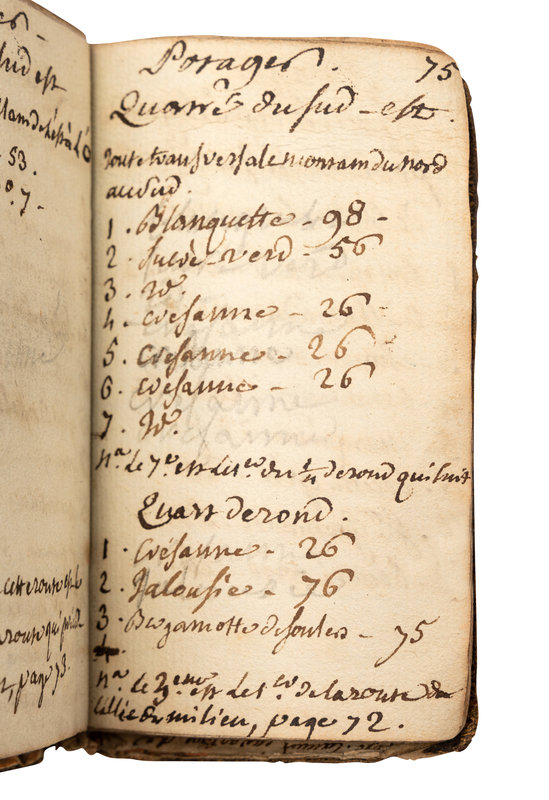 sud est
53.
7.
cette route est
page 73.
Potager.
75
Quarré du sud-est.
route transversale montant du nord
au sud.
1. Blanquette - 98 -
2. sucré-verd - 56
3. Id.
4. crésanne - 26
5. crésanne - 26
6. crésanne - 26
7. Id.
na. le 7e. est le 1er. du 1/4 de rond qui suit
Quart de rond.
1. Crésanne - 26
2. Jalousie - 76
3. Bergamotte de soulers - 75
4.
na. le 3eme. est le 1er. de la route
milieu, page 72.